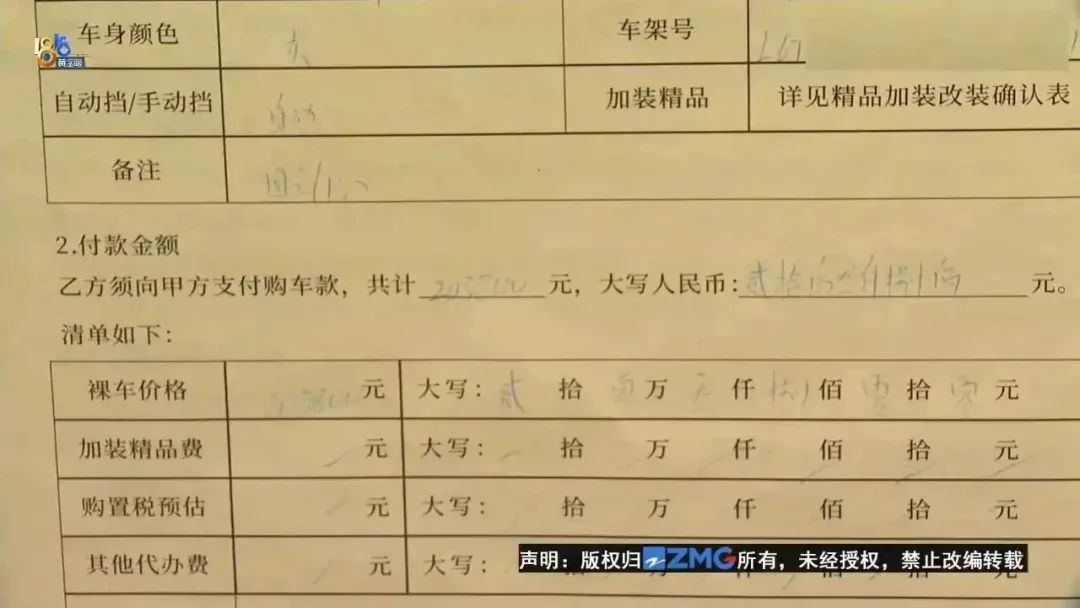 1818
黄金眼
车身颜色 车架号 L
自动挡/手动挡 自动 加装精品 详见精品加装改装确认表
备注
2.付款金额
乙方须向甲方支付购车款，共计 元，大写人民币: 元。
清单如下：
裸车价格 元 大写： 贰 拾 零 万 仟 捌 佰 零 拾 零 元
加装精品费 元 大写： 拾 万 仟 佰 拾 元
购置税预估 元 大写： 拾 万 仟 佰 拾 元
其他代办费 元 大写：
声明：版权归ZMG所有，未经授权，禁止改编转载